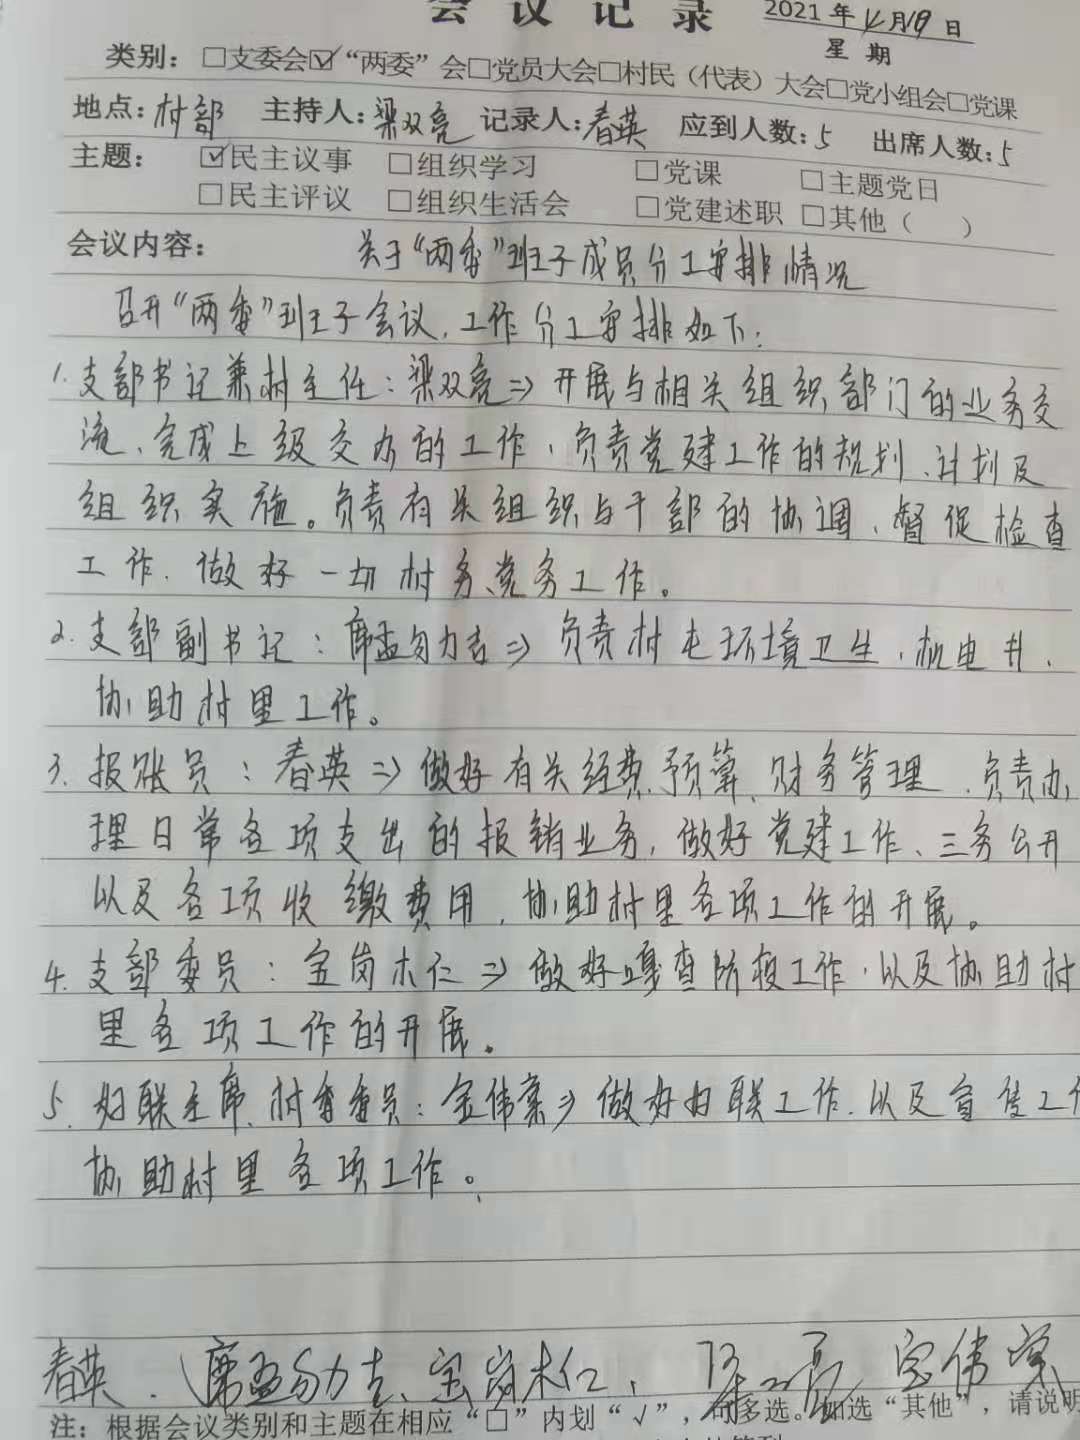 会议记录
2021年4月19日
星期
类别：□支委会☑“两委”会□党员大会□村民（代表）大会□党小组会□党课
地点：村部 主持人：梁双亮 记录人：春英 应到人数：5 出席人数：5
主题： ☑民主议事 □组织学习 □党课 □主题党日
□民主评议 □组织生活会 □党建述职 □其他（ ）
会议内容： 关于“两委”班子成员分工安排情况
召开“两委”班子会议，工作分工安排如下：
1.支部书记兼村主任：梁双亮⇒开展与相关组织部门的业务交
流、完成上级交办的工作，负责党建工作的规划、计划及
组织实施。负责有关组织与干部的协调、督促检查
工作、做好一切村务、党务工作。
2.支部副书记：席孟勿力吉⇒负责村屯环境卫生，机电井、
协助村里工作。
3.报账员：春英⇒做好有关经费预算、财务管理、负责办
理日常各项支出的报销业务，做好党建工作、三务公开
以及各项收缴费用，协助村里各项工作的开展。
4.支部委员：宝岗木仁⇒做好嘎查防疫工作，以及协助村
里各项工作的开展。
5.妇联主席、村委委员：金伟荣⇒做好妇联工作、以及宣传工作
协助村里各项工作。
春英、席孟勿力吉、宝岗木仁、
注：根据会议类别和主题在相应“□”内划“√”，可多选。如选“其他”，请说明